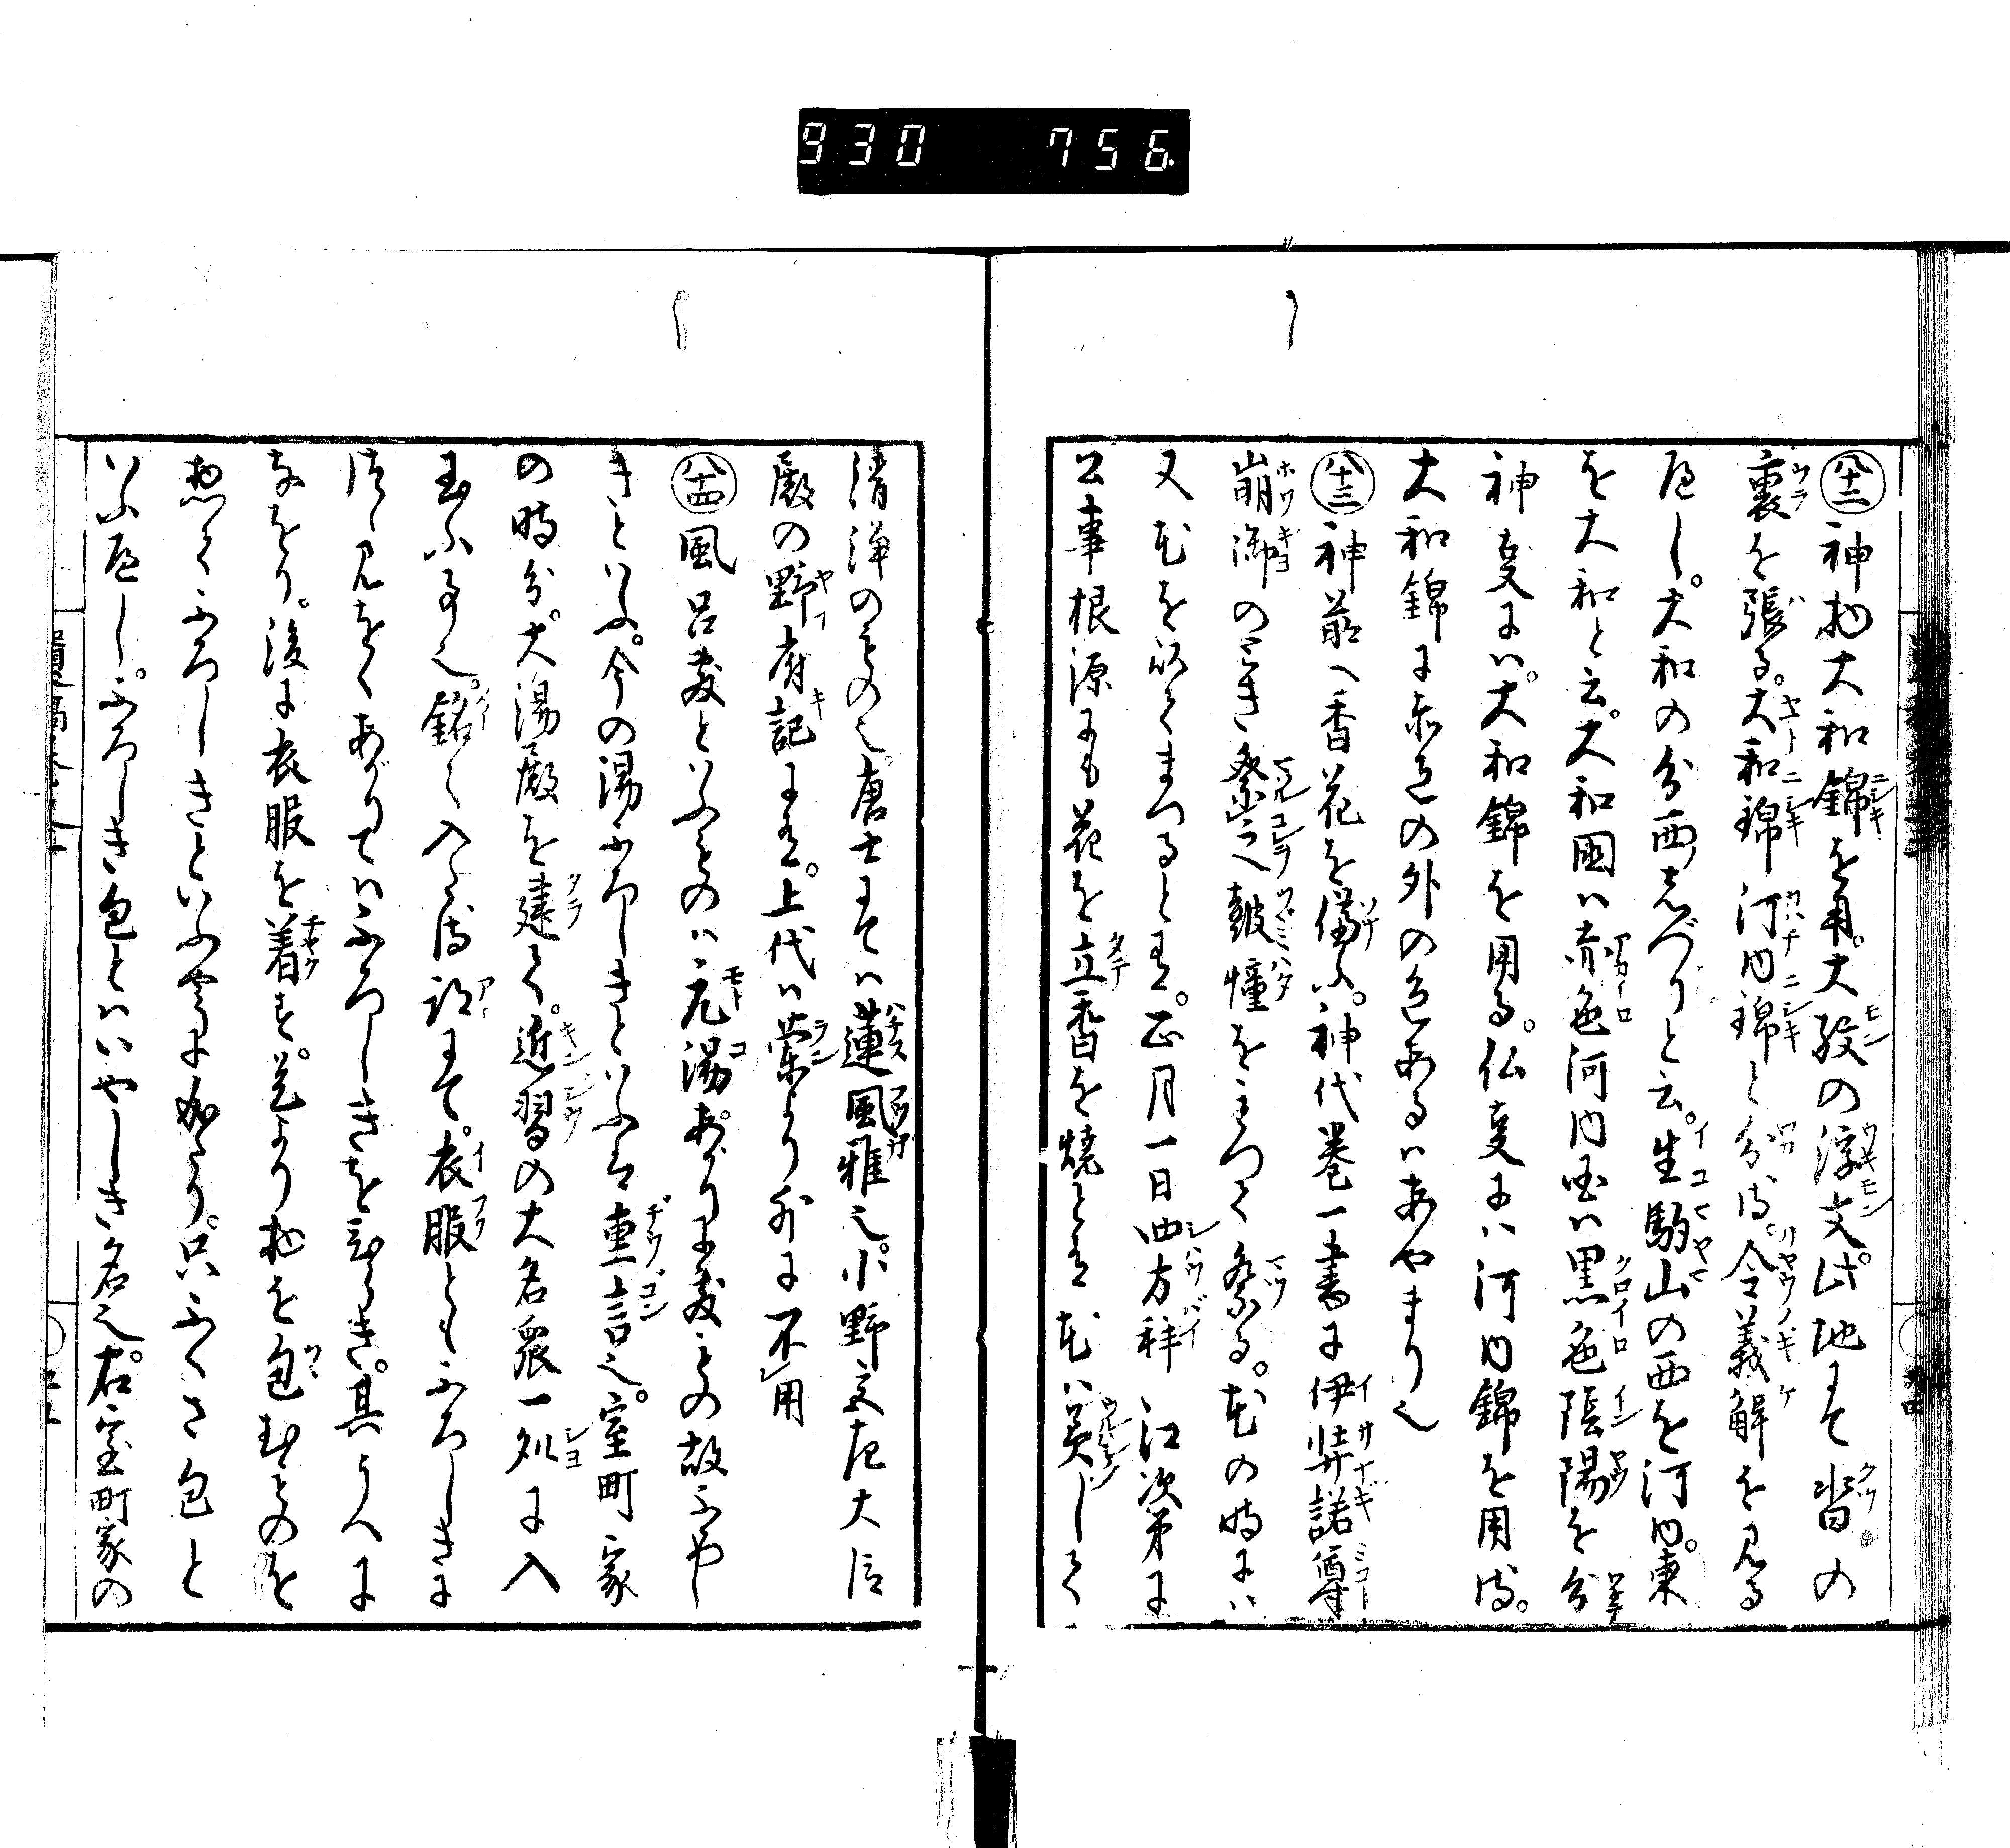 930 756
八十二 神物大和錦を用。大紋の浮文。此地にて沓の
裏を張る。大和錦河内錦と分ル。令義解を見る
べし。大和の分西きづりと云。生駒山の西を河内。東
を大和と云。大和国ハ赤色河内国ハ黒色陰陽を分
神事にハ。大和錦を用る。仏事にハ河内錦を用ル。
大和錦に赤色の外の色あるハあやまり也
八十三 神前へ香花を備ふ。神代巻一書に伊弉諾尊
崩御のとき祭之鼓幢をもつて祭る。花の時にハ
又花を以てまつると有。正月一日四方拝江次第に
公事根源にも花を立香を焼と有花ハ美しく
清浄のもの也。唐土にてハ蓮風雅也。小野文左大臣
殿の野府記に有。上代ハ蘭より外に不用
八十四 風呂敷といふものハ元湯あがりに敷もの故ふろし
きといふ。今の湯ふろしきといふは重言也。室町家
の時分。大湯殿を建て。近習の大名衆一処に入
玉ふ事也。銘々入ル時訳にて。衣服ともふろしきに
つゝみをくあがりてハふろしきをひらき。其うへに
なをり。後に衣服を着す。是より物を包むものを
惣てふろしきといふやうに成たり。只ふくさ包と
いふべし。ふろしき包とハいやしき名也。右室町家の